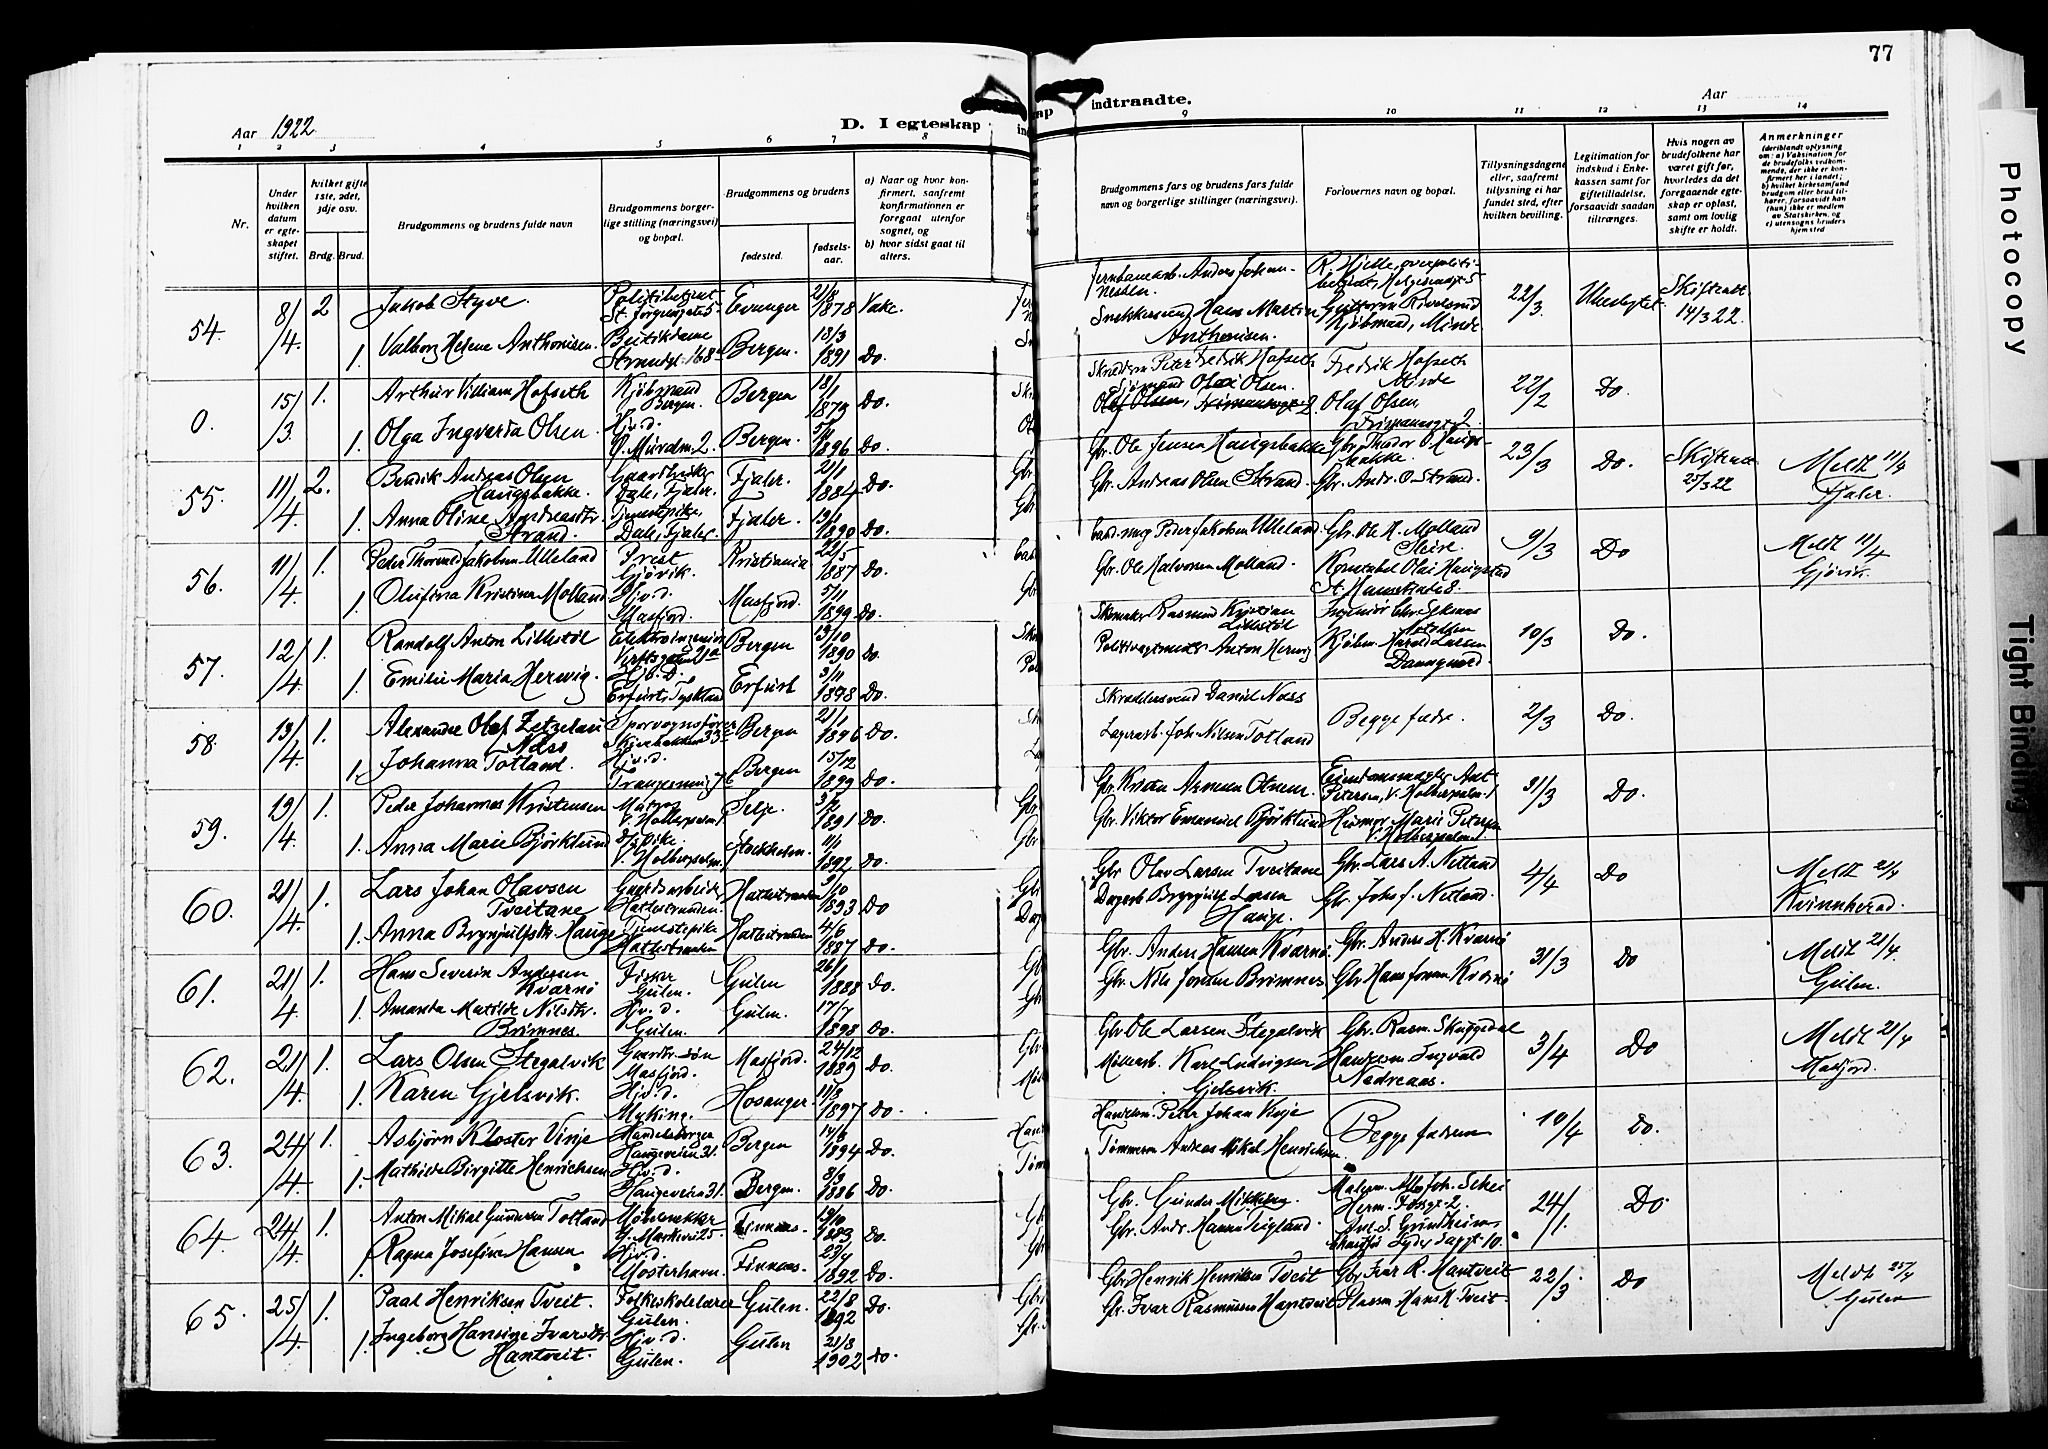 77
Photocopy
Tight Binding
Aar 1922
D. I egteskap
indtraadte.
Aar
1 2 3 4 5 6 7 8
9 10 11 12 13 14
Nr.
Under hvilken datum er egteskapet stiftet.
hvilket gifte 1ste, 2det, 3dje osv.
Brdg. Brud.
Brudgommens og brudens fulde navn
Brudgommens borgerlige stilling (næringsvei) og bopæl.
Brudgommens og brudens
fødested.
fødselsaar.
a) Naar og hvor konfirmert, saafremt konfirmationen er foregaat utenfor sognet, og
b) hvor sidst gaat til alters.
Brudgommens fars og brudens fars fulde navn og borgerlige stillinger (næringsvei).
Forlovernes navn og bopæl.
Tillysningsdagene eller, saafremt tillysning ei har fundet sted, efter hvilken bevilling.
Legitimation for indskud i Enkekassen samt for giftetilladelse, forsaavidt saadan tiltrænges.
Hvis nogen av brudefolkene har været gift før, hvorledes da det foregaaende egteskap er opløst, samt om lovlig skifte er holdt.
Anmerkninger (deriblandt oplysning om: a) Vaksination for de brudefolks vedkommende, der ikke er konfirmert her i landet; b) hvilket kirkesamfund brudgom eller brud tilhører, forsaavidt han (hun) ikke er medlem av Statskirken, og c) utensogns bruders hjemsted
54. 8/4 2 Jakob Styve. Politibetjent St. Jørgensgate 5 Evanger 2/8 1878 Vake.
1. Valborg Helene Anthonisen. Butikdame Strandgt. 168 Bergen. 18/3 1891 Do.
Jernbanearb. Anders Johannessen. R. Hjelle, overpolitibetjent, Helgesensgt. 5 22/3. Skifteatt. 14/3 22.
Snekkersvend Hans Martin Anthonisen. Kjøbmand, Minde.
0. 15/3. 1. Arthur William Hofseth Kjøbmand Bergen. Bergen 18/1 1873 Do.
1. Olga Ingvarda Olsen. Hjv. d. Bergen. 1896 Do.
Peter Fredrik Hofseth Fredrik Hofseth Minde 22/2 Do.
Sjømand Olai Olsen. Olaf Olsen,
55. 11/4 2. Bendik Andreas Olsen Haugsbakke. Gaardbruker Dale, Fjaler. Fjaler. 21/1 1884 Do.
1. Anna Oline Andreasdtr. Strand. Tjenestepike, Dale, Fjaler. Fjaler. 19/1 1890 Do.
Gbr. Ole Jensen Haugsbakke Gbr. Theodor O. Haugsbakke. 23/3 Do. Skifteatt. 25/3 22 Meldt 11/4 Fjaler.
Gbr. Andreas Olsen Strand. Gbr. Andr. O. Strand.
56. 11/4 1. Peder Thorvald Jakobsen Ulleland Prest Gjøvik. Kristiania 22/5 1887 Do.
1. Olufina Kristina Molland Hjv. d. Masfjord. Masfjord. 5/11 1899 Do.
Peder Jakobsen Ulleland Gbr. Ole H. Molland 9/3 Do Meldt 11/4 Gjøvik.
Gbr. Ole Halvorsen Molland. Konstabel Olai Haugstad
57. 12/4 1. Randolf Anton Lillestøl Elektroingeniør Verftsgaten 21a Bergen 13/10 1890 Do.
1. Emilie Maria Herwig. Hjv. D. Erfurt, Tyskland Erfurt 3/11 1898 Do.
Skomaker Rasmus Kristian Lillestøl Ingeniør Chr. 10/3 Do.
Anton Herwig Kjøbm. Harald Larsen Damsgaard.
58. 13/4 1. Alexander Olaf Næss Sporvognsfører Bergen 21/1 1896 Do.
1. Johanna Totland. Hjv. d. Bergen 15/12 1899 Do.
Skræddersvend Daniel Næss Begge fædre. 2/3 Do.
Lagerarb. Joh. Nilsen Totland
59. 19/4 1. Peder Johannes Kristensen Murer V. Holbergsalm. Selje. 3/2 1891 Do.
1. Anna Marie Björklund V. Holbergsalm. Stockholm. 11/1 1892 Do.
Eiendomsmægler Ant. Petersen, V. Holbergsalm. 31/3 Do.
Gbr. Viktor Emanuel Björklund Husmor Marie Petersen V. Holbergsalm.
60. 21/4 1. Lars Johan Olavsen Tveitane Gaardsarbeider Hattestranden. Hattestranden 9/10 1893 Do
1. Anna Brynjulfsdtr. Hauge Tjenestepike Hattestranden Hattestranden 4/6 1887 Do.
Gbr Olav Larsen Tveitane Gbr. Lars A. Netland 4/4 Do Meldt 21/4 Kvinnherad.
Brynjulf Larsen Hauge. Gbr. Johs. J. Netland.
61. 21/4 1. Hans Severin Andersen Kvarnø Fisker Gulen. Gulen 26/1 1888 Do.
1. Amanda Matilde Nilsdtr. Brimnes. Hjv. d. Gulen. Gulen. 17/7 1898 Do.
Gbr. Anders Hansen Kvarnø Gbr. Anders H. Kvarnø 31/3 Do Meldt 21/4. Gulen.
Gbr. Nils Jonsen Brimnes Gbr. Hans
62. 21/4 1. Lars Olsen Stegalvik Gaardbr. søn Masfjord. Masfjord. 24/12 1889 Do
1. Karen Gjelsvik. Hjv. d. Myking. Hosanger. 11/8 1897 Do.
Gbr Ole Larsen Stegalvik Gbr. Rasm. Skuggedal 3/4 Do Meldt 21/4 Masfjord.
Karl Ludvigsen Gjelsvik. Handelsm. Ingvald Nedreaas.
63. 24/4 1. Asbjørn Kloster Vinje Handelsborger Haugeveien 31. Bergen 14/6 1894 Do.
1. Mathilde Birgitte Henrichsen Hjv. d. Haugeveien 31. Bergen. 8/3 1886 Do.
Handelsm. Peter Johan Vinje Begge fædrene 10/4 Do.
Tømmerm. Andreas Mikal Henrichsen.
64. 24/4 1. Anton Mikal Gundersen Totland Møbelsnekker Finnaas. 19/10 1883 Do
1. Ragna Josefine Hansen Hjv. d. Mosterhavn. Finnaas. 23/4 1892 Do.
Gbr. Gunder Mikkelsen. Malerm. Schei Herm. Fossgt. 2. 24/1 Do.
Gbr. Andr. Hansen Teigland. Ant. S. Grindheim
65. 25/4 1. Paal Henriksen Tveit. Folkeskolelærer Gulen. Gulen. 22/8 1892 Do.
1. Ingeborg Hansine Ivarsdtr. Hantveit. Hjv. d. Gulen. Gulen 31/8 1902 Do.
Gbr Henrik Henriksen Tveit Gbr Ivar R. Hantveit 22/3 Do Meldt 25/4 Gulen
Gbr. Ivar Rasmussen Hantveit Hans H. Tveit.